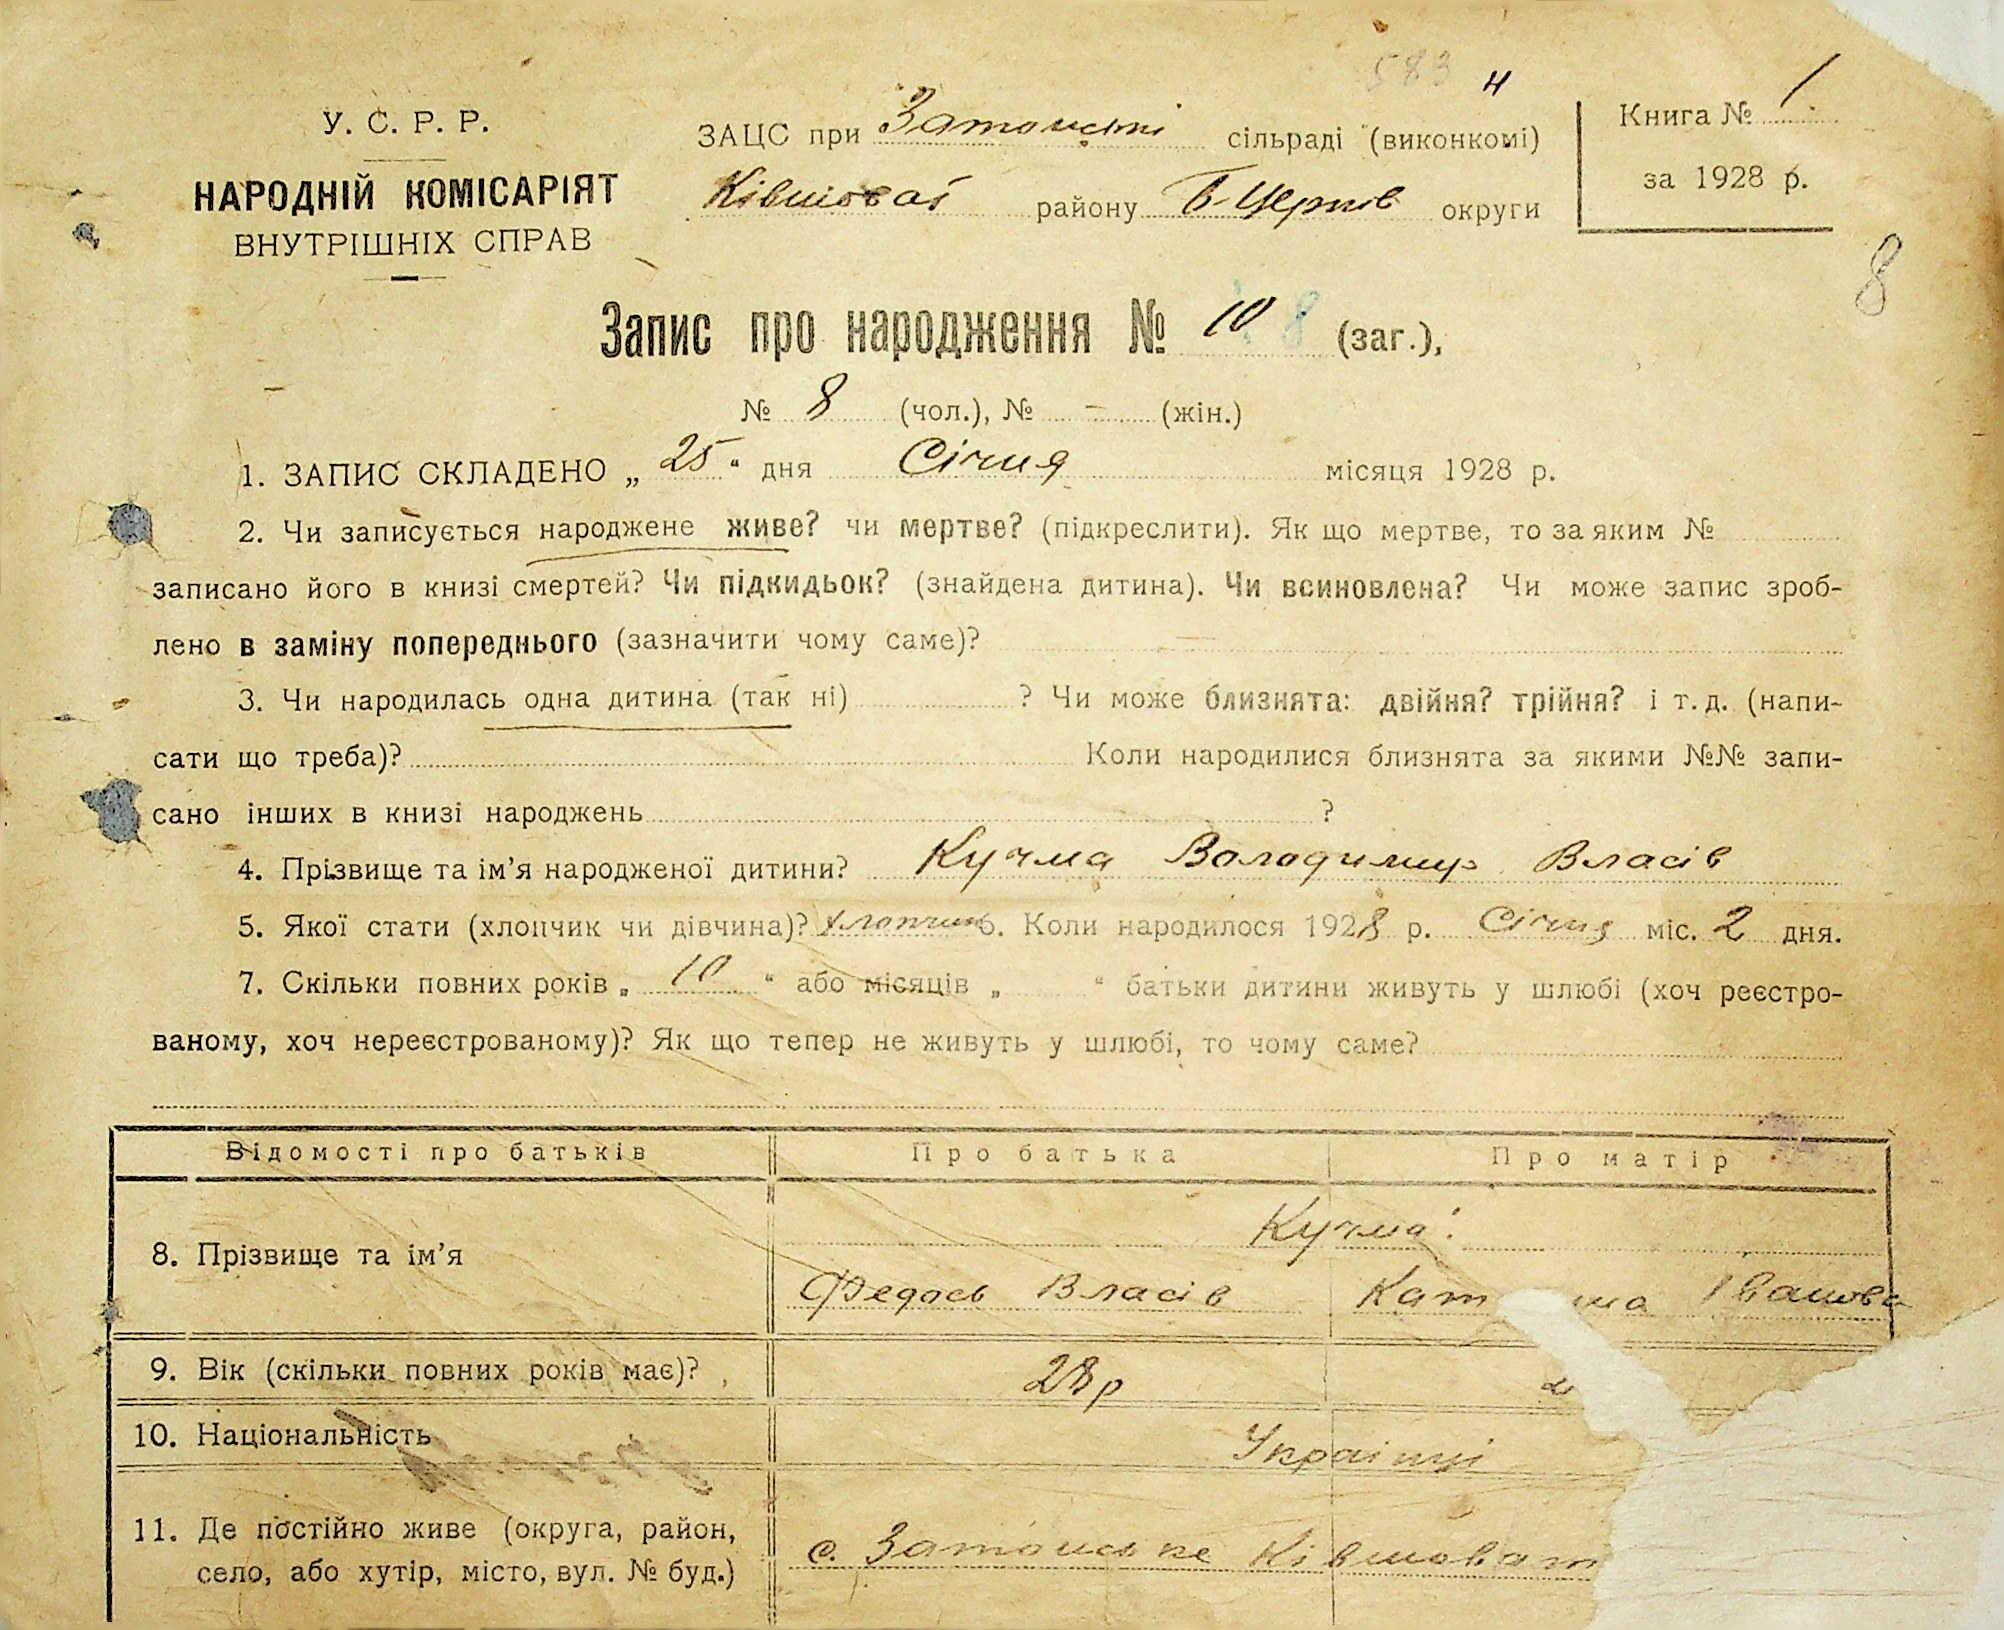 583 н
У. С. Р. Р.
НАРОДНІЙ КОМІСАРІЯТ
ВНУТРІШНІХ СПРАВ
ЗАЦС при сільраді (виконкомі)
району Б-Церків округи
Книга № 1
за 1928 р.
8
Запис про народження № 10 8 (заг.),
№ 8 (чол.), № - (жін.)
1. ЗАПИС СКЛАДЕНО „ 25 “ дня Січня місяця 1928 р.
2. Чи записується народжене живе? чи мертве? (підкреслити). Як що мертве, то за яким №
записано його в книзі смертей? Чи підкидьок? (знайдена дитина). Чи всиновлена? Чи може запис зроб-
лено в заміну попереднього (зазначити чому саме)? —
3. Чи народилась одна дитина (так ні) ? Чи може близнята: двійня? трійня? і т. д. (напи-
сати що треба)? Коли народилися близнята за якими №№ запи-
сано інших в книзі народжень ?
4. Прізвище та ім’я народженої дитини? Кучма Володимир Власів
5. Якої стати (хлопчик чи дівчина)? хлопчик 6. Коли народилося 1928 р. Січня міс. 2 дня.
7. Скільки повних років „ 10 “ або місяців „ “ батьки дитини живуть у шлюбі (хоч реєстро-
ваному, хоч нереєстрованому)? Як що тепер не живуть у шлюбі, то чому саме?
Відомості про батьків Про батька Про матір
8. Прізвище та ім’я Кучма
Федось Власів Іванова
9. Вік (скільки повних років має)? 28 р
10. Національність Українці
11. Де постійно живе (округа, район,
село, або хутір, місто, вул. № буд.) с. Затонське